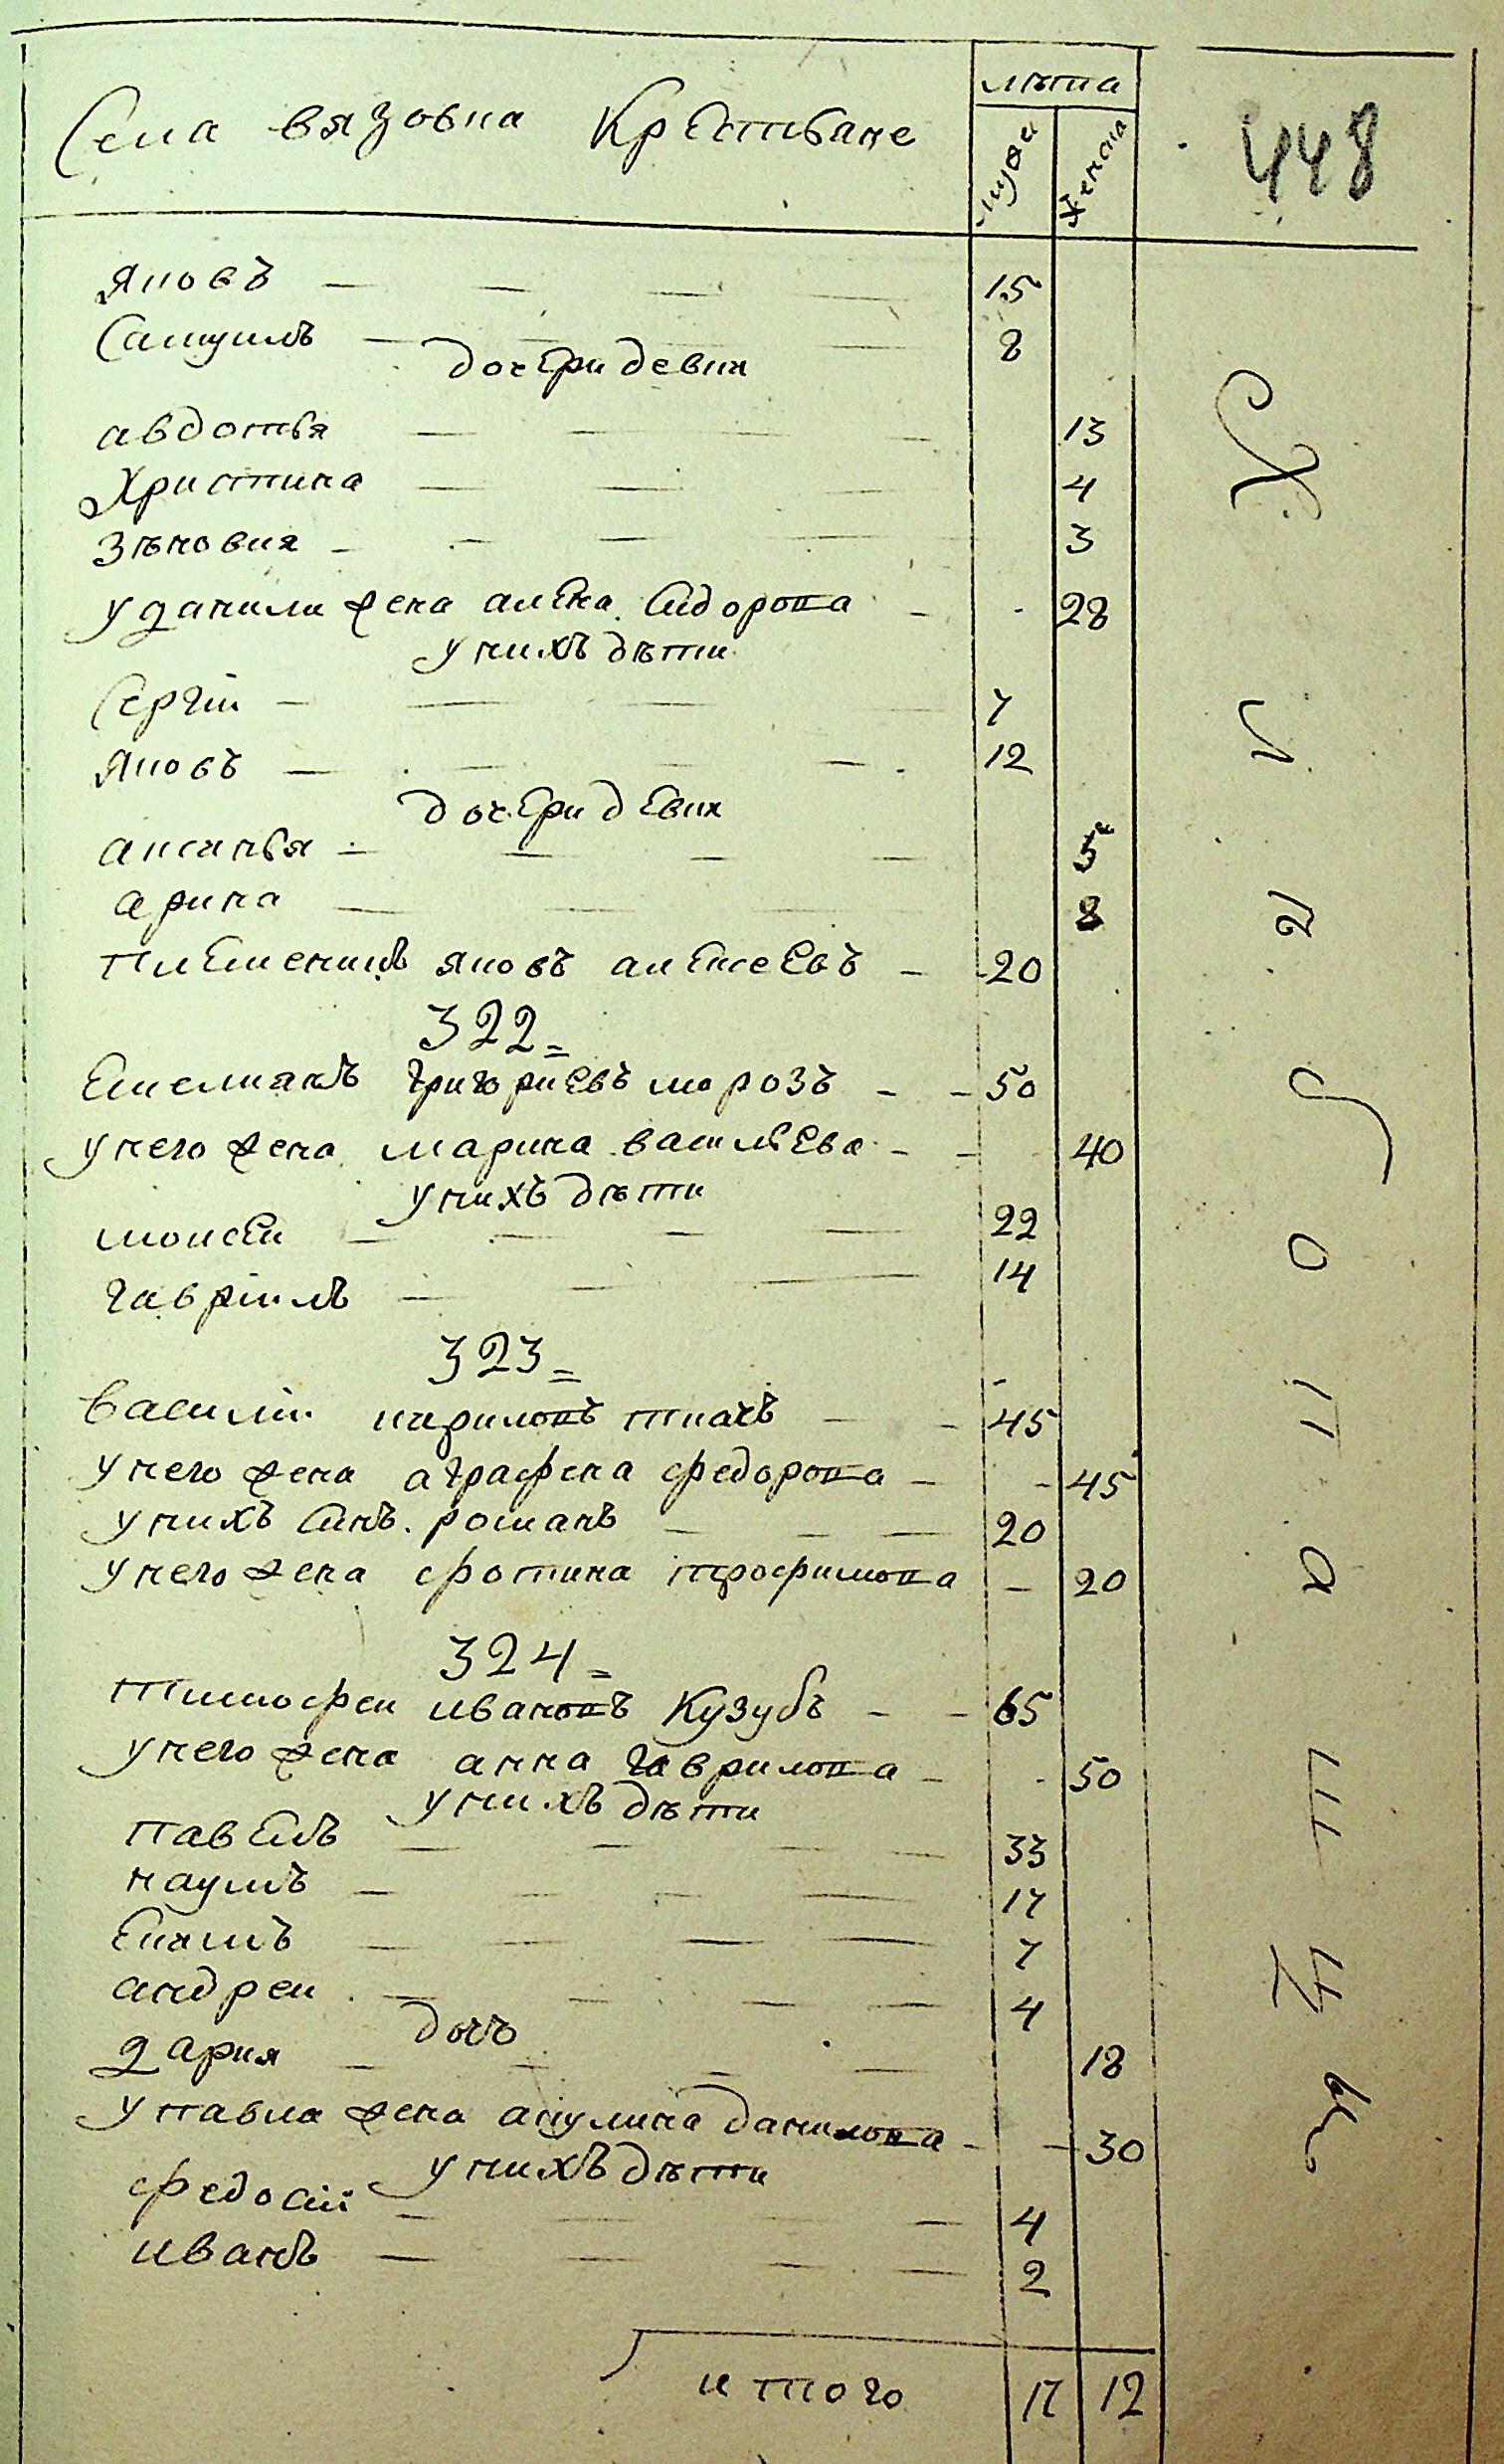 Села вязовка Крестьяне
лѣта
мужи
женска
448
Яковъ 15
Самуилъ 8
дочери девки
авдотья 13
Христина 4
Зѣновия 3
у данили жена алена Сидорова 28
у нихъ дѣти
Сергiй 7
Яковъ 12
дочери девки
аксинья 5
арина 8
племеникъ яковъ алексеевъ 20
322
Емелиянъ григориевъ морозъ 50
у него жена марина васильева 40
у нихъ дѣти
моисей 22
гаврiилъ 14
323
василiй кириловъ ткачъ 45
у него жена аграфена федорова 45
у нихъ Синъ романъ 20
у него жена фотина трофимова 20
324
тимофеи ивановъ Кузубъ 65
у него жена анна гаврилова 50
у нихъ дѣти
павелъ 33
наумъ 17
Екимъ 7
андреи 4
дочь
дария 18
у павла жена акулина данилова 30
у нихъ дѣти
федосiй 4
иванъ 2
итого 17 12